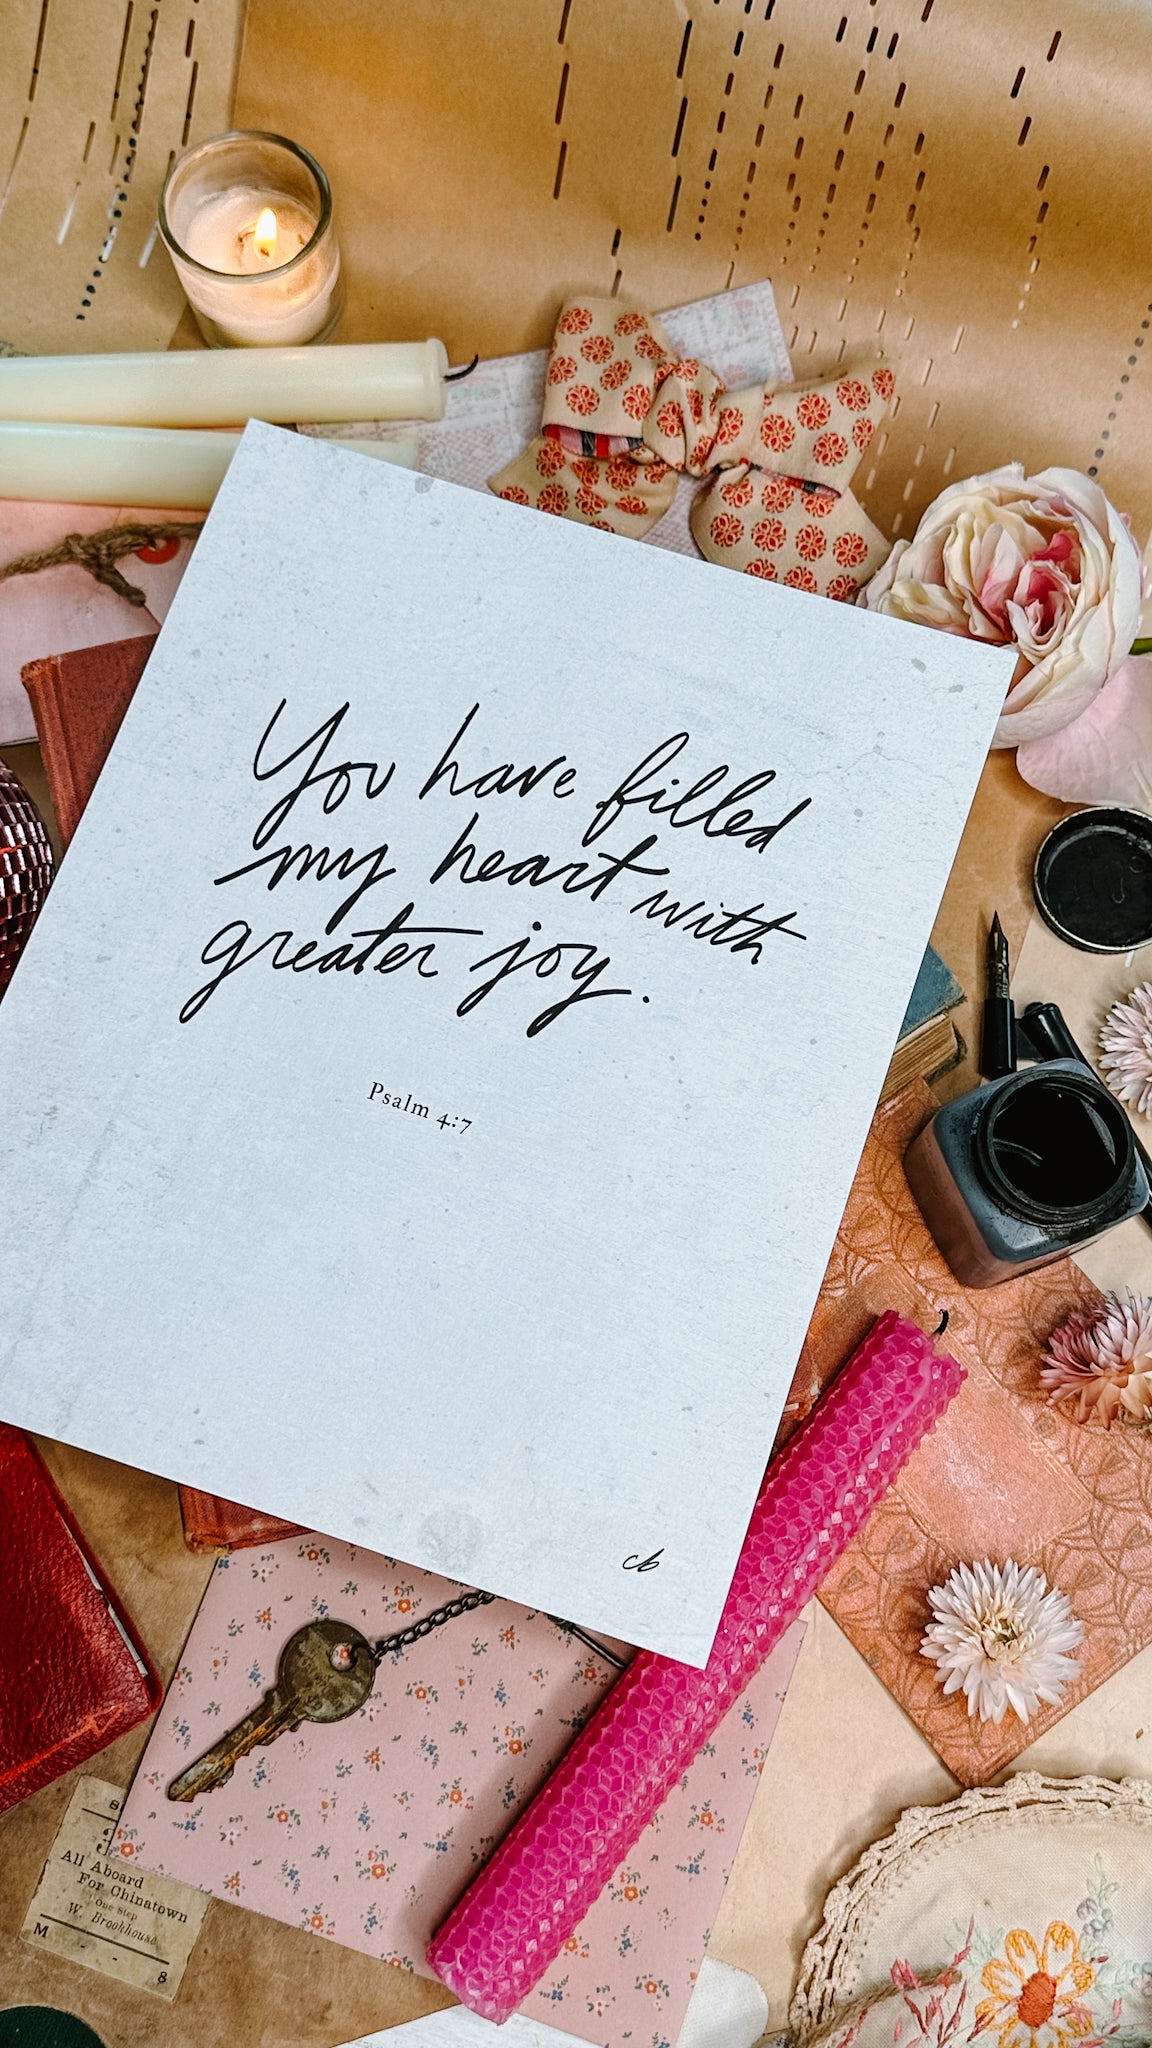 You have filled
my heart with
greater joy.
Psalm 4:7
cb
8
All Aboard
For Chinatown
One Step
W. Brookhouse
M - - 8